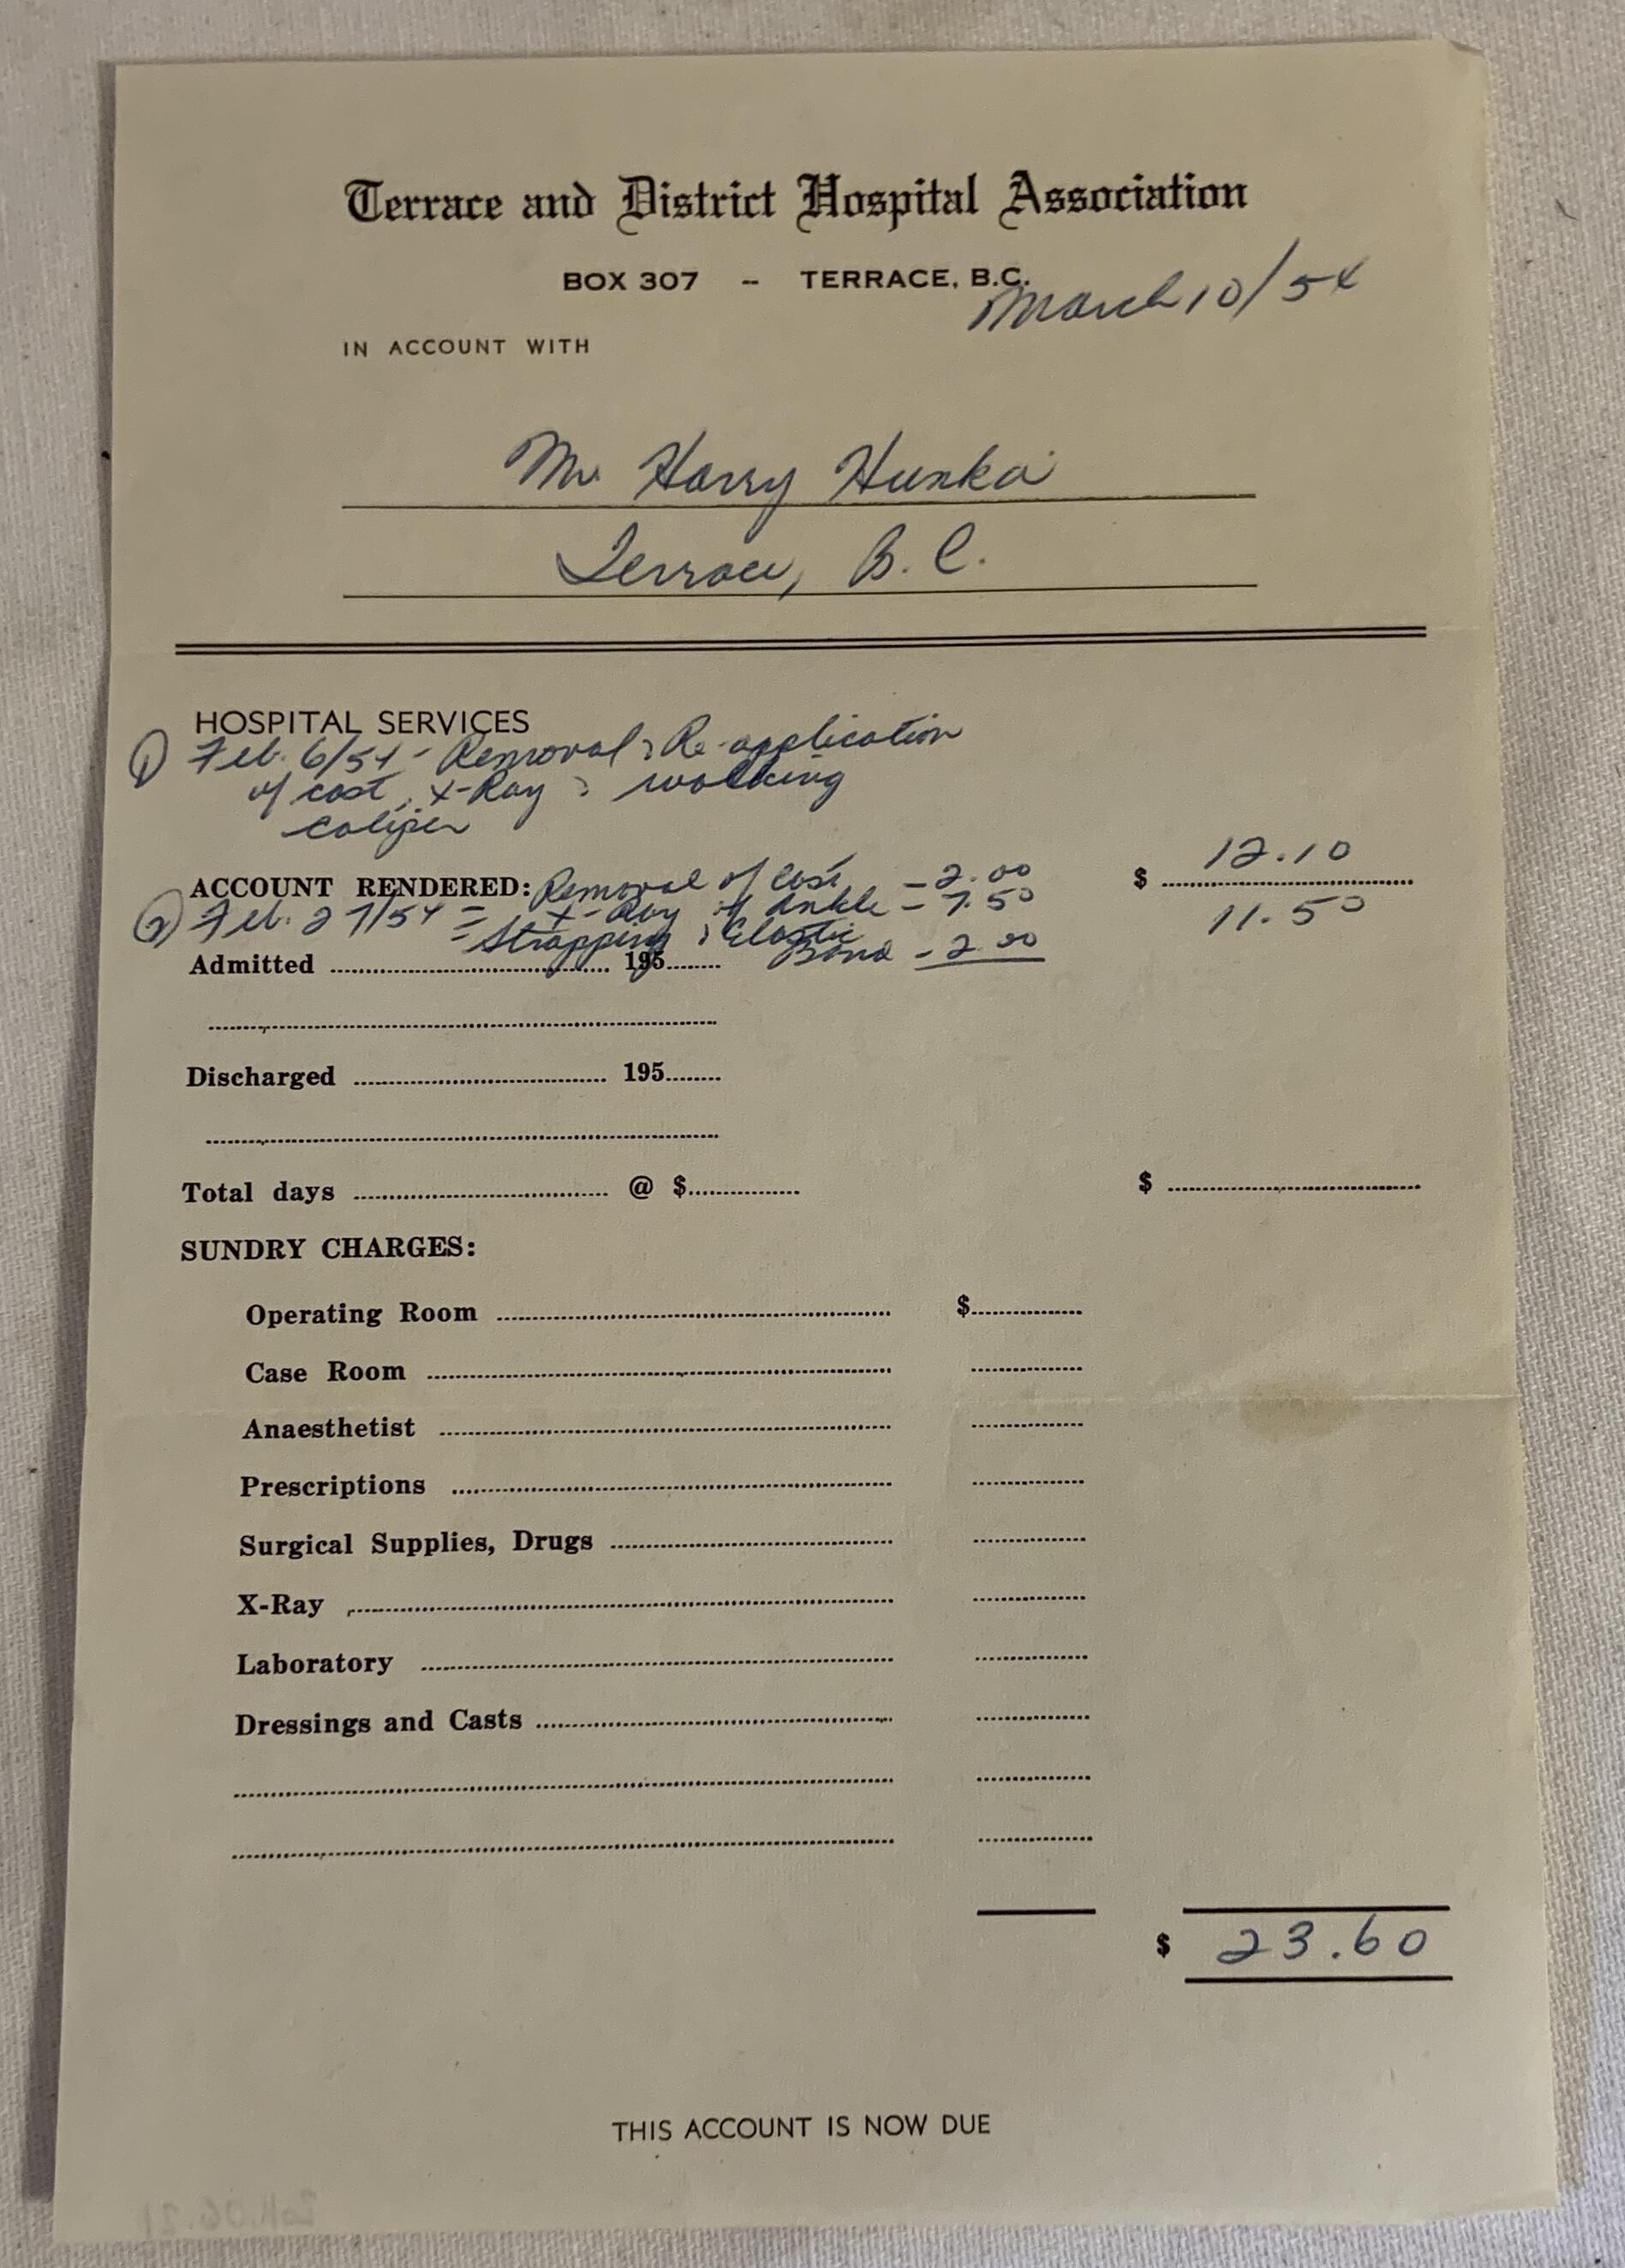 Terrace and District Hospital Association
BOX 307 -- TERRACE, B.C.
March 10/54
IN ACCOUNT WITH
Mr. Harry Hunka
Terrace, B.C.
HOSPITAL SERVICES
1) Feb. 6/54 - Removal & Re-application
of cast, X-Ray & walking
caliper
ACCOUNT RENDERED: Removal of Cast - 2.00 $ 12.10
2) Feb. 27/54 = X-Ray of Ankle - 7.50 11.50
= Strapping & Elastic
Admitted ........ 195...... Band - 2.00
Discharged ........ 195......
Total days ........ @ $........ $ ........
SUNDRY CHARGES:
Operating Room ........ $........
Case Room ........
Anaesthetist ........
Prescriptions ........
Surgical Supplies, Drugs ........
X-Ray ........
Laboratory ........
Dressings and Casts ........
$ 23.60
THIS ACCOUNT IS NOW DUE